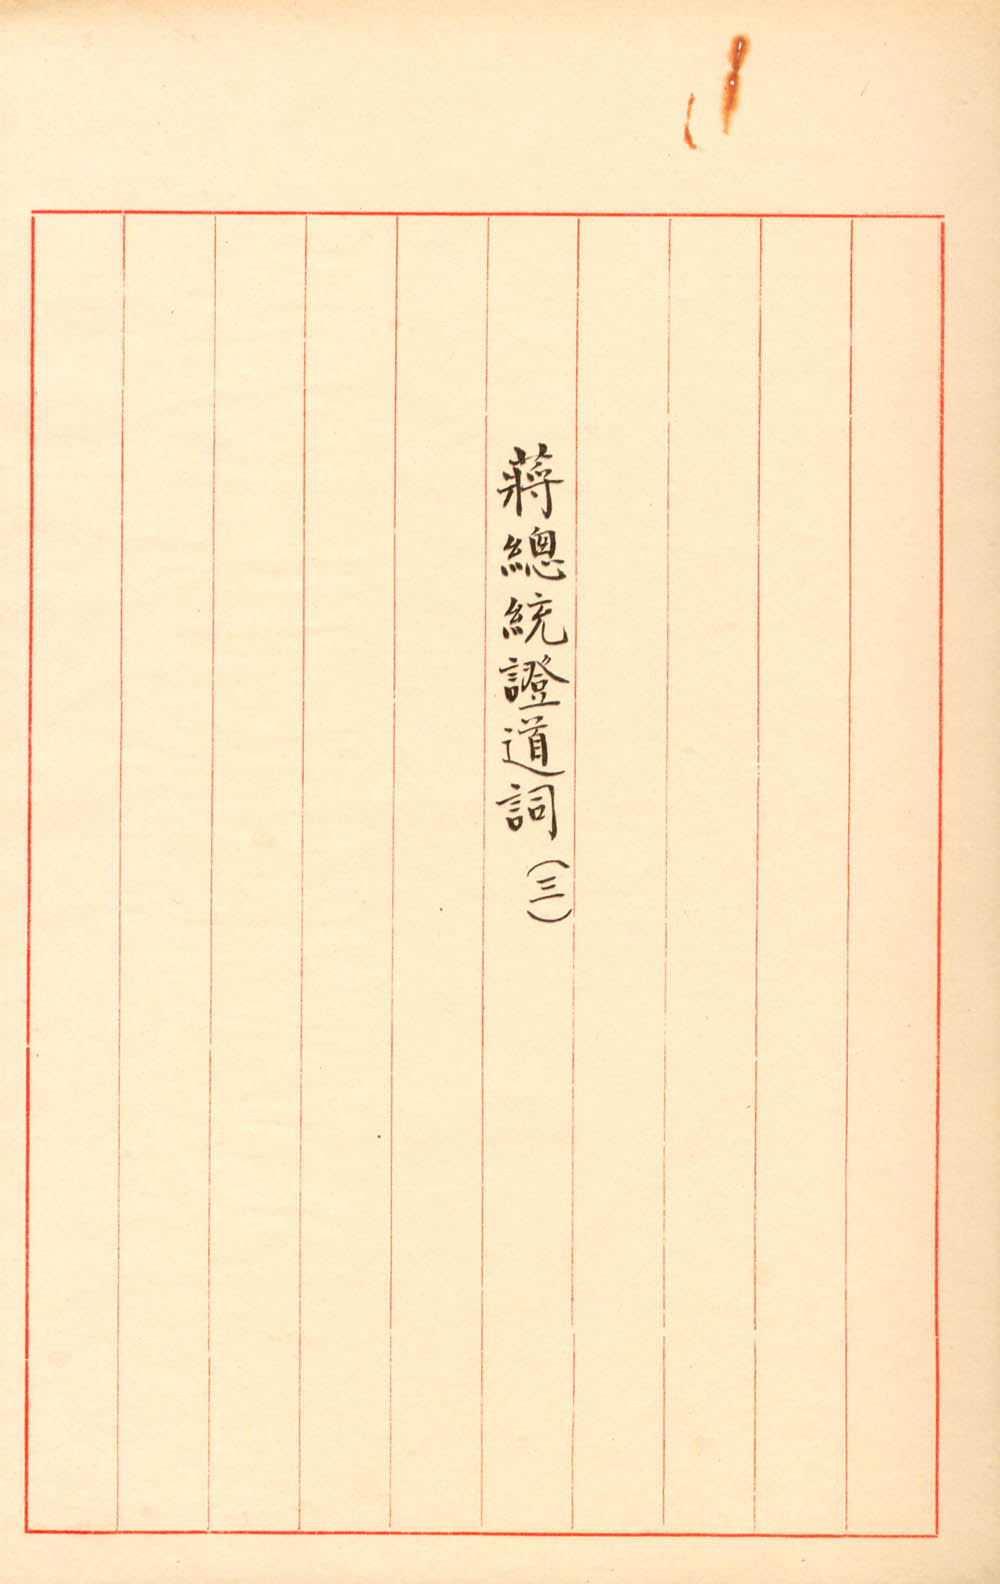 蔣總統證道詞(三)